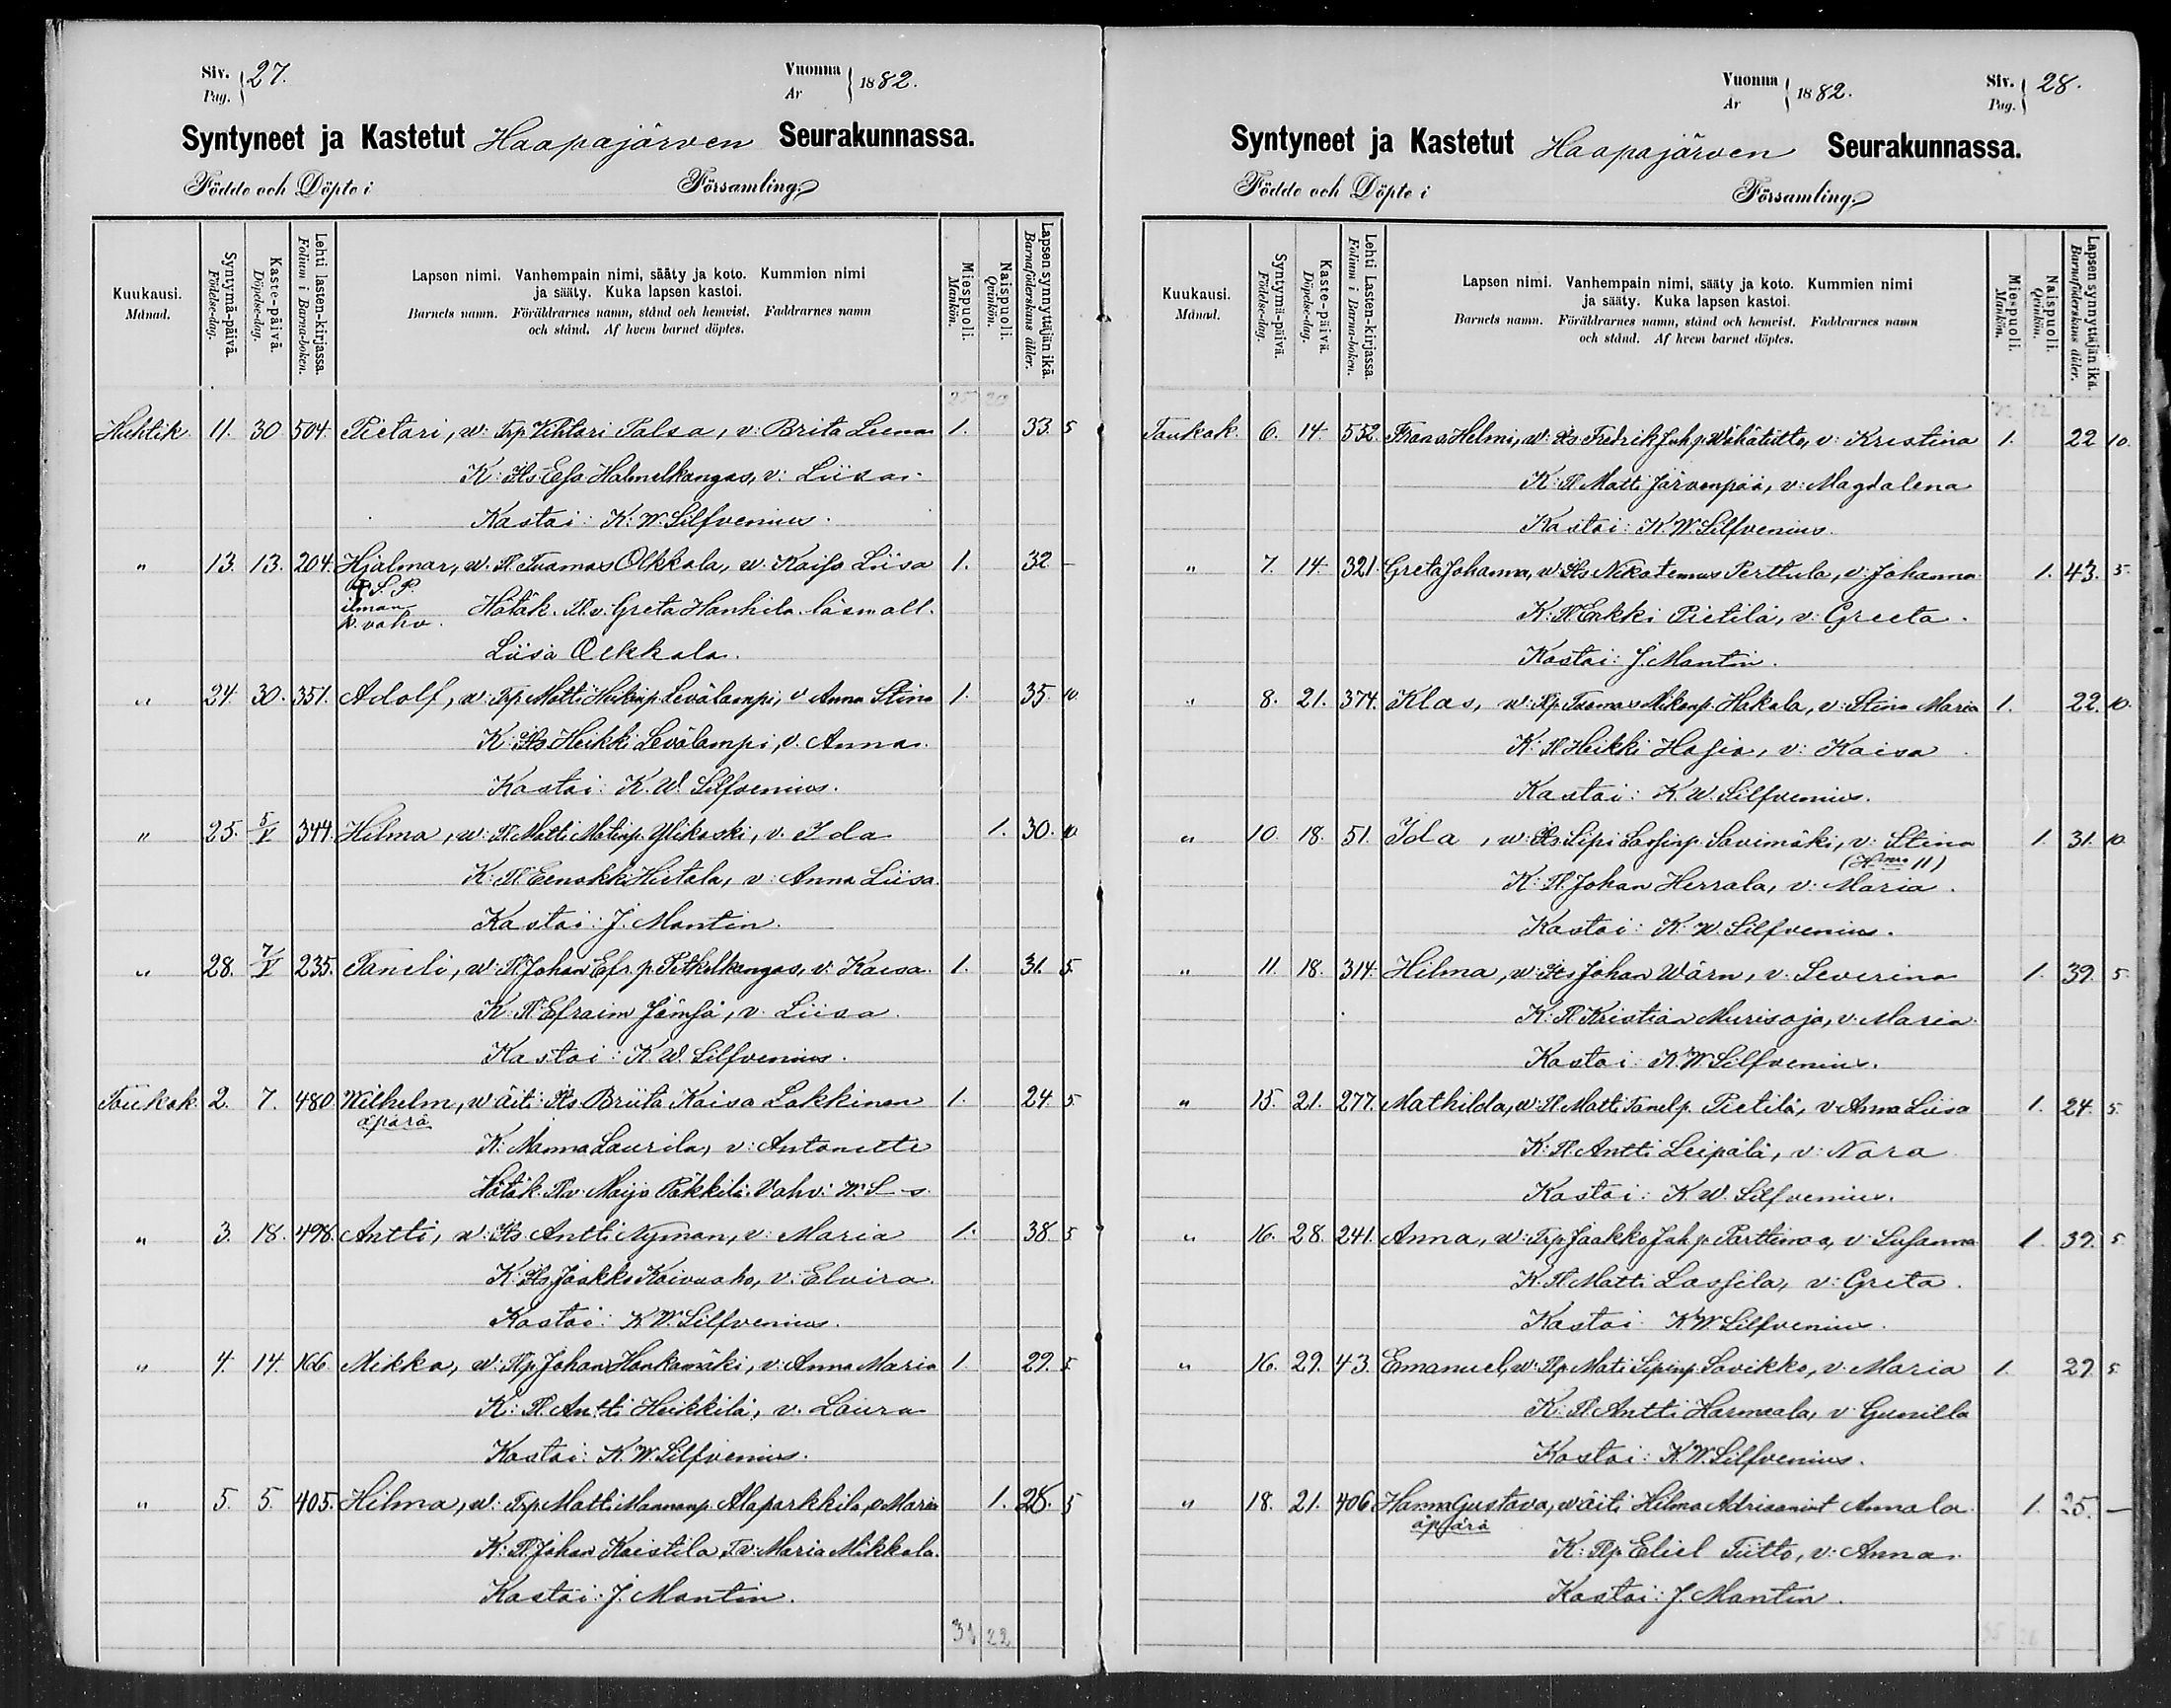 Siv. 27.
Pag.
Vuonna 1882.
Ar
Syntyneet ja Kastetut Haapajärven Seurakunnassa.
Födde och Döpte i Församling.
Kuukausi.
Månad.
Syntymä-päivä.
Födelse-dag.
Kaste-päivä.
Döpelse-dag.
Lehti lasten-kirjassa.
Folium i Barna-boken.
Lapsen nimi. Vanhempain nimi, sääty ja koto. Kummien nimi
ja sääty. Kuka lapsen kastoi.
Barnets namn. Föräldrarnes namn, stånd och hemvist. Faddrarnes namn
och stånd. Af hvem barnet döptes.
Miespuoli.
Mankön.
Naispuoli.
Qvinkön.
Lapsen synnyttäjän ikä.
Barnaföderskans ålder.
25 20
Huhtik. 11. 30 504. Pietari, w: Trp Vihtori Palsa, v: Brita Liena 1. 33. 5
K: Its Esa Halmelkangas, v: Liisa
Kastoi: K. W. Silfvenius.
" 13. 13. 204. Hjalmar, w. Tl. Tuomas Olkkola, w. Kaisa Liisa 1. 32 —
S. P.
ilman
p. vahv. Hätäk. Tl. v. Greta Hanhila läsnä oll.
Liisa Olkkola.
" 24. 30. 351. Adolf, w: Trp Matti Heikinp. Levälampi, v Anna Stina 1. 35. 10
K: Its Heikki Levälampi, v. Anna.
Kastoi: K. W. Silfvenius.
" 25. 5/V 344. Hilma, w: Tl. Matti Matinp. Ylikoski, v. Ida 1. 30. 10
K: Tl Eenokki Hietala, v: Anna Liisa.
Kastoi: J. Mantin.
" 28. 7/V 235. Taneli, w: Tl Johan Efr. p. Pitkälkangas, v: Kaisa. 1. 31. 5.
K: Tl Efraim Jämsä, v. Liisa.
Kastoi: K. W. Silfvenius.
Toukok. 2. 7. 480 Wilhelm, w äiti: Its Briita Kaisa Lakkinen 1. 24. 5.
äpärä
K: Manna Laurila, v: Antonette
Hätäk. Tl v. Maija Päkkilä. Vahv: W. S—s.
" 3. 18. 498. Antti, w: Its Antti Nyman, v: Maria 1. 38. 5
K: Its Jaakko Koivuaho, v: Elvira.
Kastoi: K W. Silfvenius.
" 4. 14. 166. Mikko, w: Tlp. Johan Honkamäki, v: Anna Maria 1. 29. 5
K: Tl. Antti Heikkilä, v. Laura
Kastoi: K. W. Silfvenius.
" 5. 5. 405. Hilma, w: Trp Matti Mannanp. Alaparkkila, v Maria 1. 28. 5
K: Tl Johan Kaistila, T. v: Maria Mikkola.
Kastoi: J. Mantin.
31 22
Vuonna 1882.
Ar
Siv. 28.
Pag.
Syntyneet ja Kastetut Haapajärven Seurakunnassa.
Födde och Döpte i Församling.
Kuukausi.
Månad.
Syntymä-päivä.
Födelse-dag.
Kaste-päivä.
Döpelse-dag.
Lehti Lasten-kirjassa.
Folium i Barna-boken.
Lapsen nimi. Vanhempain nimi, sääty ja koto. Kummien nimi
ja sääty. Kuka lapsen kastoi.
Barnets namn. Föräldrarnes namn, stånd och hemvist. Faddrarnes namn
och stånd. Af hvem barnet döptes.
Miespuoli.
Mankön.
Naispuoli.
Qvinkön.
Lapsen synnyttäjän ikä.
Barnaföderskans ålder.
Toukok. 6. 14. 552. Frans Helmi, w: Its Fredrik Juh. p. Wihätutto, v: Kristina 1. 22 10.
K: Tl Matti Järvenpää, v: Magdalena
Kastoi: K. W. Silfvenius.
" 7. 14. 321. Greta Johanna, w: Its Nikotemus Perttula, v: Johanna 1. 43. 5.
K: Tl Erkki Pietilä, v: Greeta.
Kastoi: J. Mantin.
" 8. 21. 374. Klas, w: Tlp. Tuomas Mikonp. Hakala, v: Stina Maria 1. 22. 10.
K: Tl Heikki Hosio, v: Kaisa.
Kastoi: K. W. Silfvenius.
" 10. 18. 51. Ida, w: Its Sipi Lassinp. Savimäki, v: Stina 1. 31. 10.
K: Tl. Johan Herrala, v: Maria.
Kastoi: K. W. Silfvenius.
" 11. 18. 314. Hilma, w: Its Johan Wärn, v. Severina 1. 39. 5.
K: Tl Kristian Murisoja, v: Maria.
Kastoi: K. W. Silfvenius.
" 15. 21. 277. Mathilda, w: Tl. Matti Tanelp. Pietilä, v Anna Liisa 1. 24. 5.
K: Tl. Antti Leipälä, v: Nora
Kastoi: K W. Silfvenius.
" 16. 28. 241. Anna, w: Trp Jaakko Juh. p. Parttimaa, v: Susanna 1. 39. 5
K: Tl. Matti Lassila, v: Greta.
Kastoi: K W Silfvenius.
" 16. 29. 43. Emanuel, w: Tlp. Mati Sipinp. Savikko, v: Maria 1. 29. 5.
K: Tl Antti Harmaala, v: Gunilla
Kastoi: K W Silfvenius.
" 18. 21. 406 Hanna Gustava, w äiti Hilma Adriaanint Annala 1. 25. —
äpärä
K: Tlp. Eliel Tiitto, v: Anna.
Kastoi: J. Mantin.